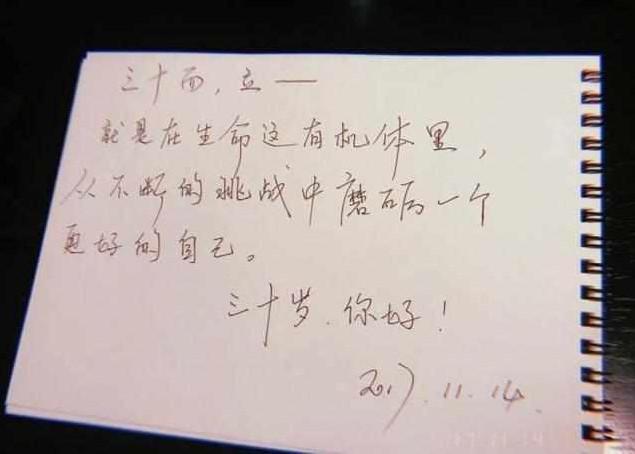 三十而,立——
就是在生命这有机体里,
从不断的挑战中磨砺一个
更好的自己。
三十岁.你好!
2017.11.14.